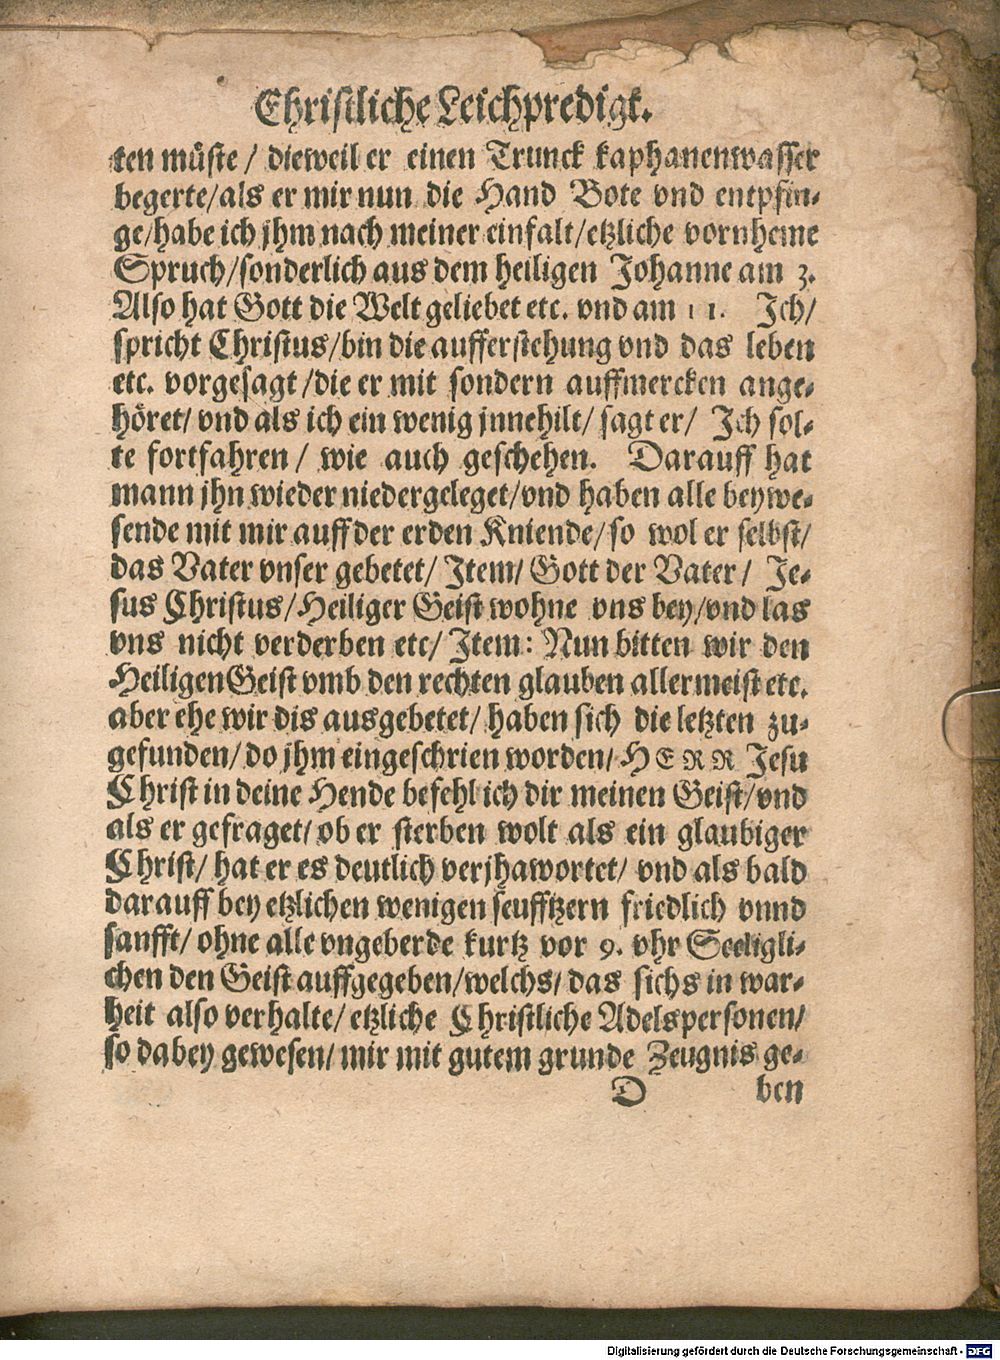 Christliche Leichpredigt.
ten müste / dieweil er einen Trunck kaphanenwasser
begerte/als er mir nun die Hand Bote vnd entpfin-
ge/habe ich jhm nach meiner einfalt/etzliche vornheme
Spruch/sonderlich aus dem heiligen Johanne am 3.
Also hat Gott die Welt geliebet etc. vnd am 11. Ich/
spricht Christus/bin die aufferstehung vnd das leben
etc. vorgesagt /die er mit sondern auffmercken ange-
höret/ vnd als ich ein wenig jnnehilt/ sagt er/ Ich sol-
te fortfahren / wie auch geschehen. Darauff hat
mann jhn wieder niedergeleget/vnd haben alle beywe-
sende mit mir auff der erden Kniende/so wol er selbst/
das Vater vnser gebetet/ Item/ Gott der Vater / Je-
sus Christus/Heiliger Geist wohne vns bey/vnd las
vns nicht verderben etc/ Item: Nun bitten wir den
Heiligen Geist vmb den rechten glauben allermeist etc.
aber ehe wir dis ausgebetet/ haben sich die letzten zu-
gefunden/do jhm eingeschrien worden/ HERR Jesu
Christ in deine Hende befehl ich dir meinen Geist/vnd
als er gefraget/ ob er sterben wolt als ein glaubiger
Christ/ hat er es deutlich verjhawortet/ vnd als bald
darauff bey etzlichen wenigen seufftzern friedlich vnnd
sanfft/ ohne alle vngeberde kurtz vor 9. vhr Seeligli-
chen den Geist auffgegeben/welchs/ das sichs in war-
heit also verhalte/ etzliche Christliche Adelspersonen/
so dabey gewesen/ mir mit gutem grunde Zeugnis ge-
D ben
Digitalisierung gefördert durch die Deutsche Forschungsgemeinschaft - DFG